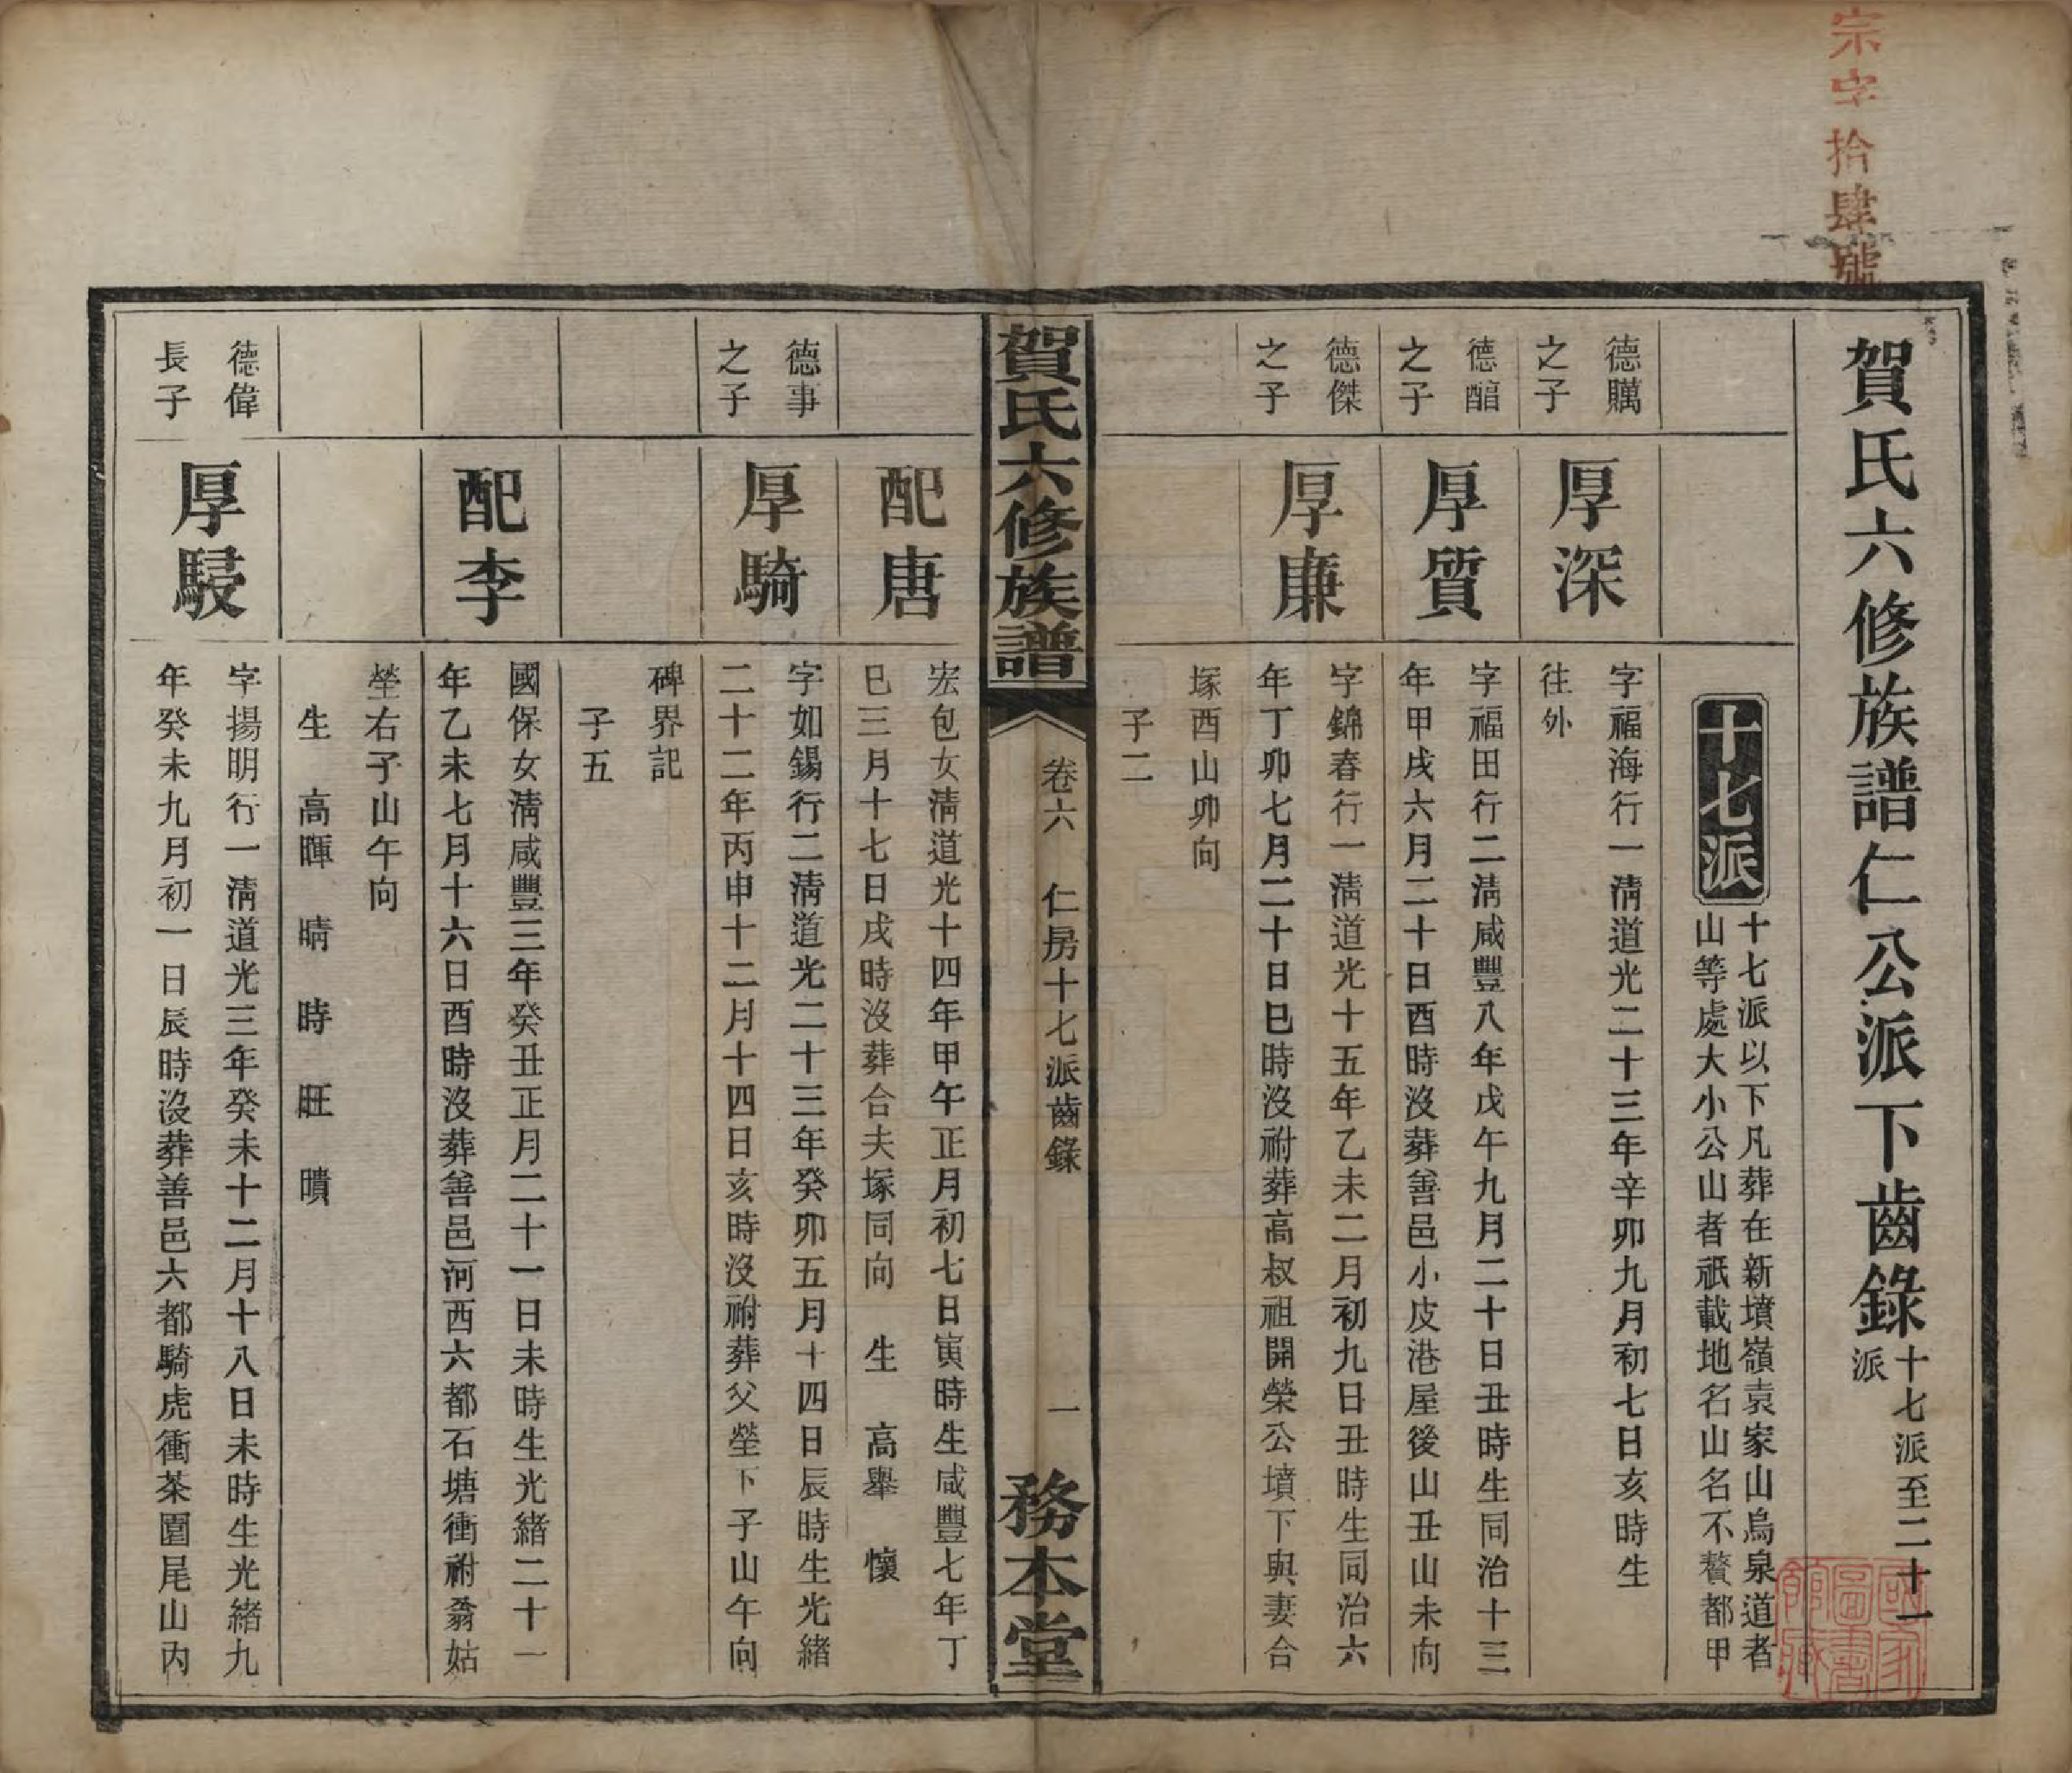 宗字拾肆號
賀氏六修族譜仁公派下齒錄
十七派至二十一
派
十七派
十七派以下凡葬在新墳嶺袁家山烏泉道者
山等處大小公山者祇載地名山名不贅都甲
德䥑之子
厚深
字福海行一清道光二十三年辛卯九月初七日亥時生
往外
德醕之子
厚質
字福田行二清咸豐八年戊午九月二十日丑時生同治十三
年甲戌六月二十日酉時沒葬善邑小皮港屋後山丑山未向
德傑之子
厚廉
字錦春行一清道光十五年乙未二月初九日丑時生同治六
年丁卯七月二十日巳時沒祔葬高叔祖開榮公墳下與妻合
塚酉山卯向
子二
賀氏六修族譜
卷六 仁房十七派齒錄
一
務本堂
配唐
宏包女清道光十四年甲午正月初七日寅時生咸豐七年丁
巳三月十七日戌時沒葬合夫塚同向 生 高舉 懷
德事之子
厚騎
字如錫行二清道光二十三年癸卯五月十四日辰時生光緒
二十二年丙申十二月十四日亥時沒祔葬父塋下子山午向
碑界記
子五
配李
國保女清咸豐三年癸丑正月二十一日未時生光緒二十一
年乙未七月十六日酉時沒葬善邑河西六都石塘衝祔翁姑
塋右子山午向
生 高暉 晴 時 旺 曊
德偉長子
厚駸
字揚明行一清道光三年癸未十二月十八日未時生光緒九
年癸未九月初一日辰時沒葬善邑六都騎虎衝茶園尾山內
國家圖書館藏